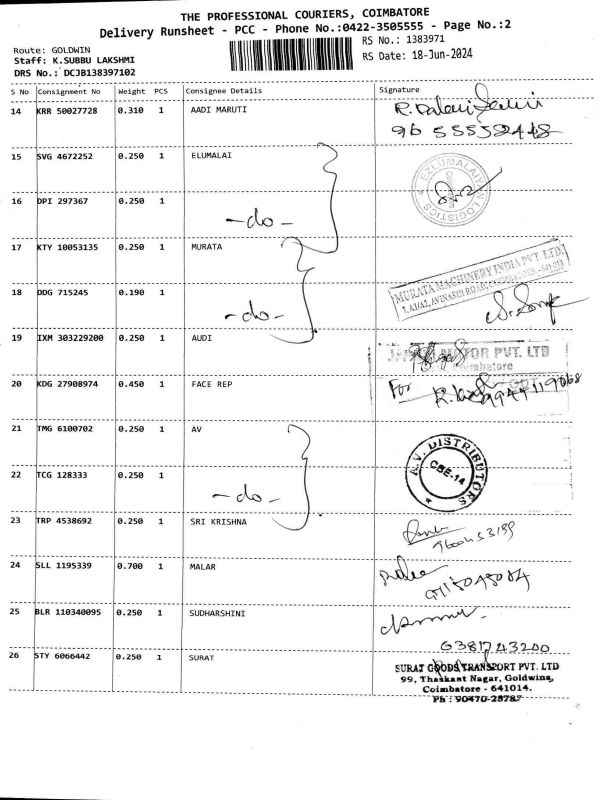 THE PROFESSIONAL COURIERS, COIMBATORE
Delivery Runsheet - PCC - Phone No.:0422-3505555 - Page No.:2
Route: GOLDWIN
RS No.: 1383971
Staff: K.SUBBU LAKSHMI
RS Date: 18-Jun-2024
DRS No.: DCJB138397102
S No Consignment No Weight PCS Consignee Details Signature
14 KRR 50027728 0.310 1 AADI MARUTI
15 SVG 4672252 0.250 1 ELUMALAI
EZLUMALAIYAN LOGISTICS
16 DPI 297367 0.250 1
-do-
17 KTY 10053135 0.250 1 MURATA
MURATA MACHINERY INDIA PVT. LTD.
18 DDG 715245 0.190 1
-do-
19 IXM 303229200 0.250 1 AUDI
MOTOR PVT. LTD
Coimbatore
20 KDG 27908974 0.450 1 FACE REP
For
21 TMG 6100702 0.250 1 AV
A.V. DISTRIBUTORS
CBE-14
22 TCG 128333 0.250 1
-do-
23 TRP 4538692 0.250 1 SRI KRISHNA
24 SLL 1195339 0.700 1 MALAR
25 BLR 110340095 0.250 1 SUDHARSHINI
26 STY 6066442 0.250 1 SURAT
SURAT GOODS TRANSPORT PVT. LTD
99, Thaskant Nagar, Goldwins,
Coimbatore - 641014.
Ph : 90470-28787